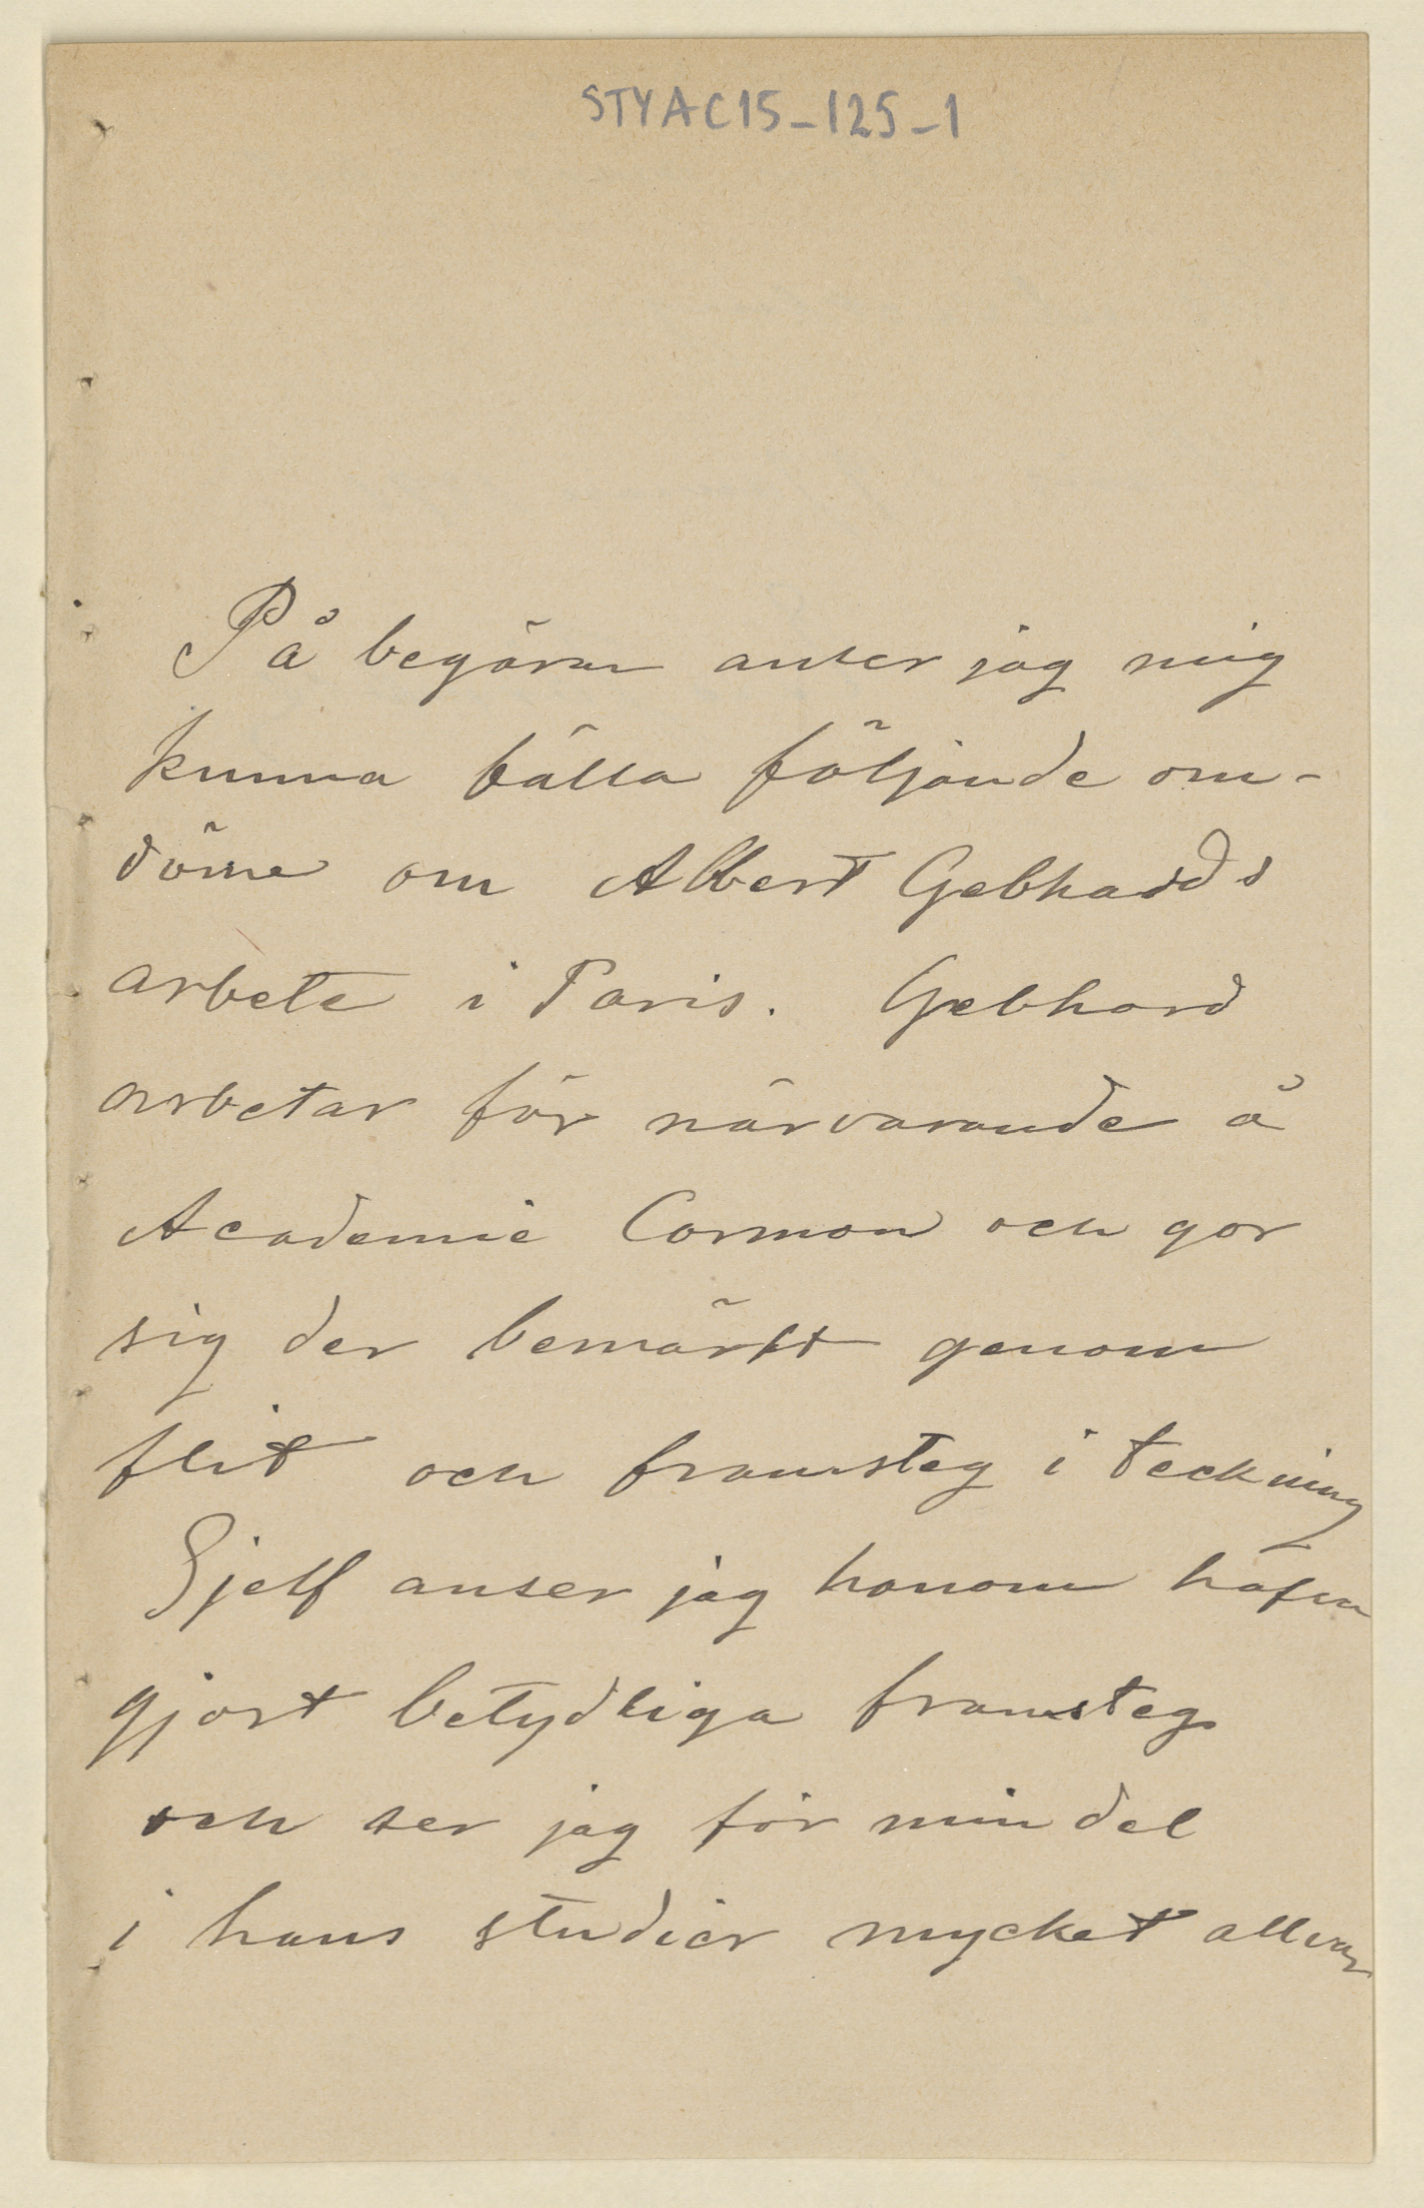 STYAC15-125-1
På begäran anser jag mig
kunna fälla följande om-
döme om Albert Gebhards
arbete i Paris. Gebhard
arbetar för närvarande å
Academie Cormon och gör
sig der bemärkt genom
flit och framsteg i teckning
Sjelf anser jag honom hafva
gjort betydliga framsteg
och ser jag för min del
i hans studier mycket allvar